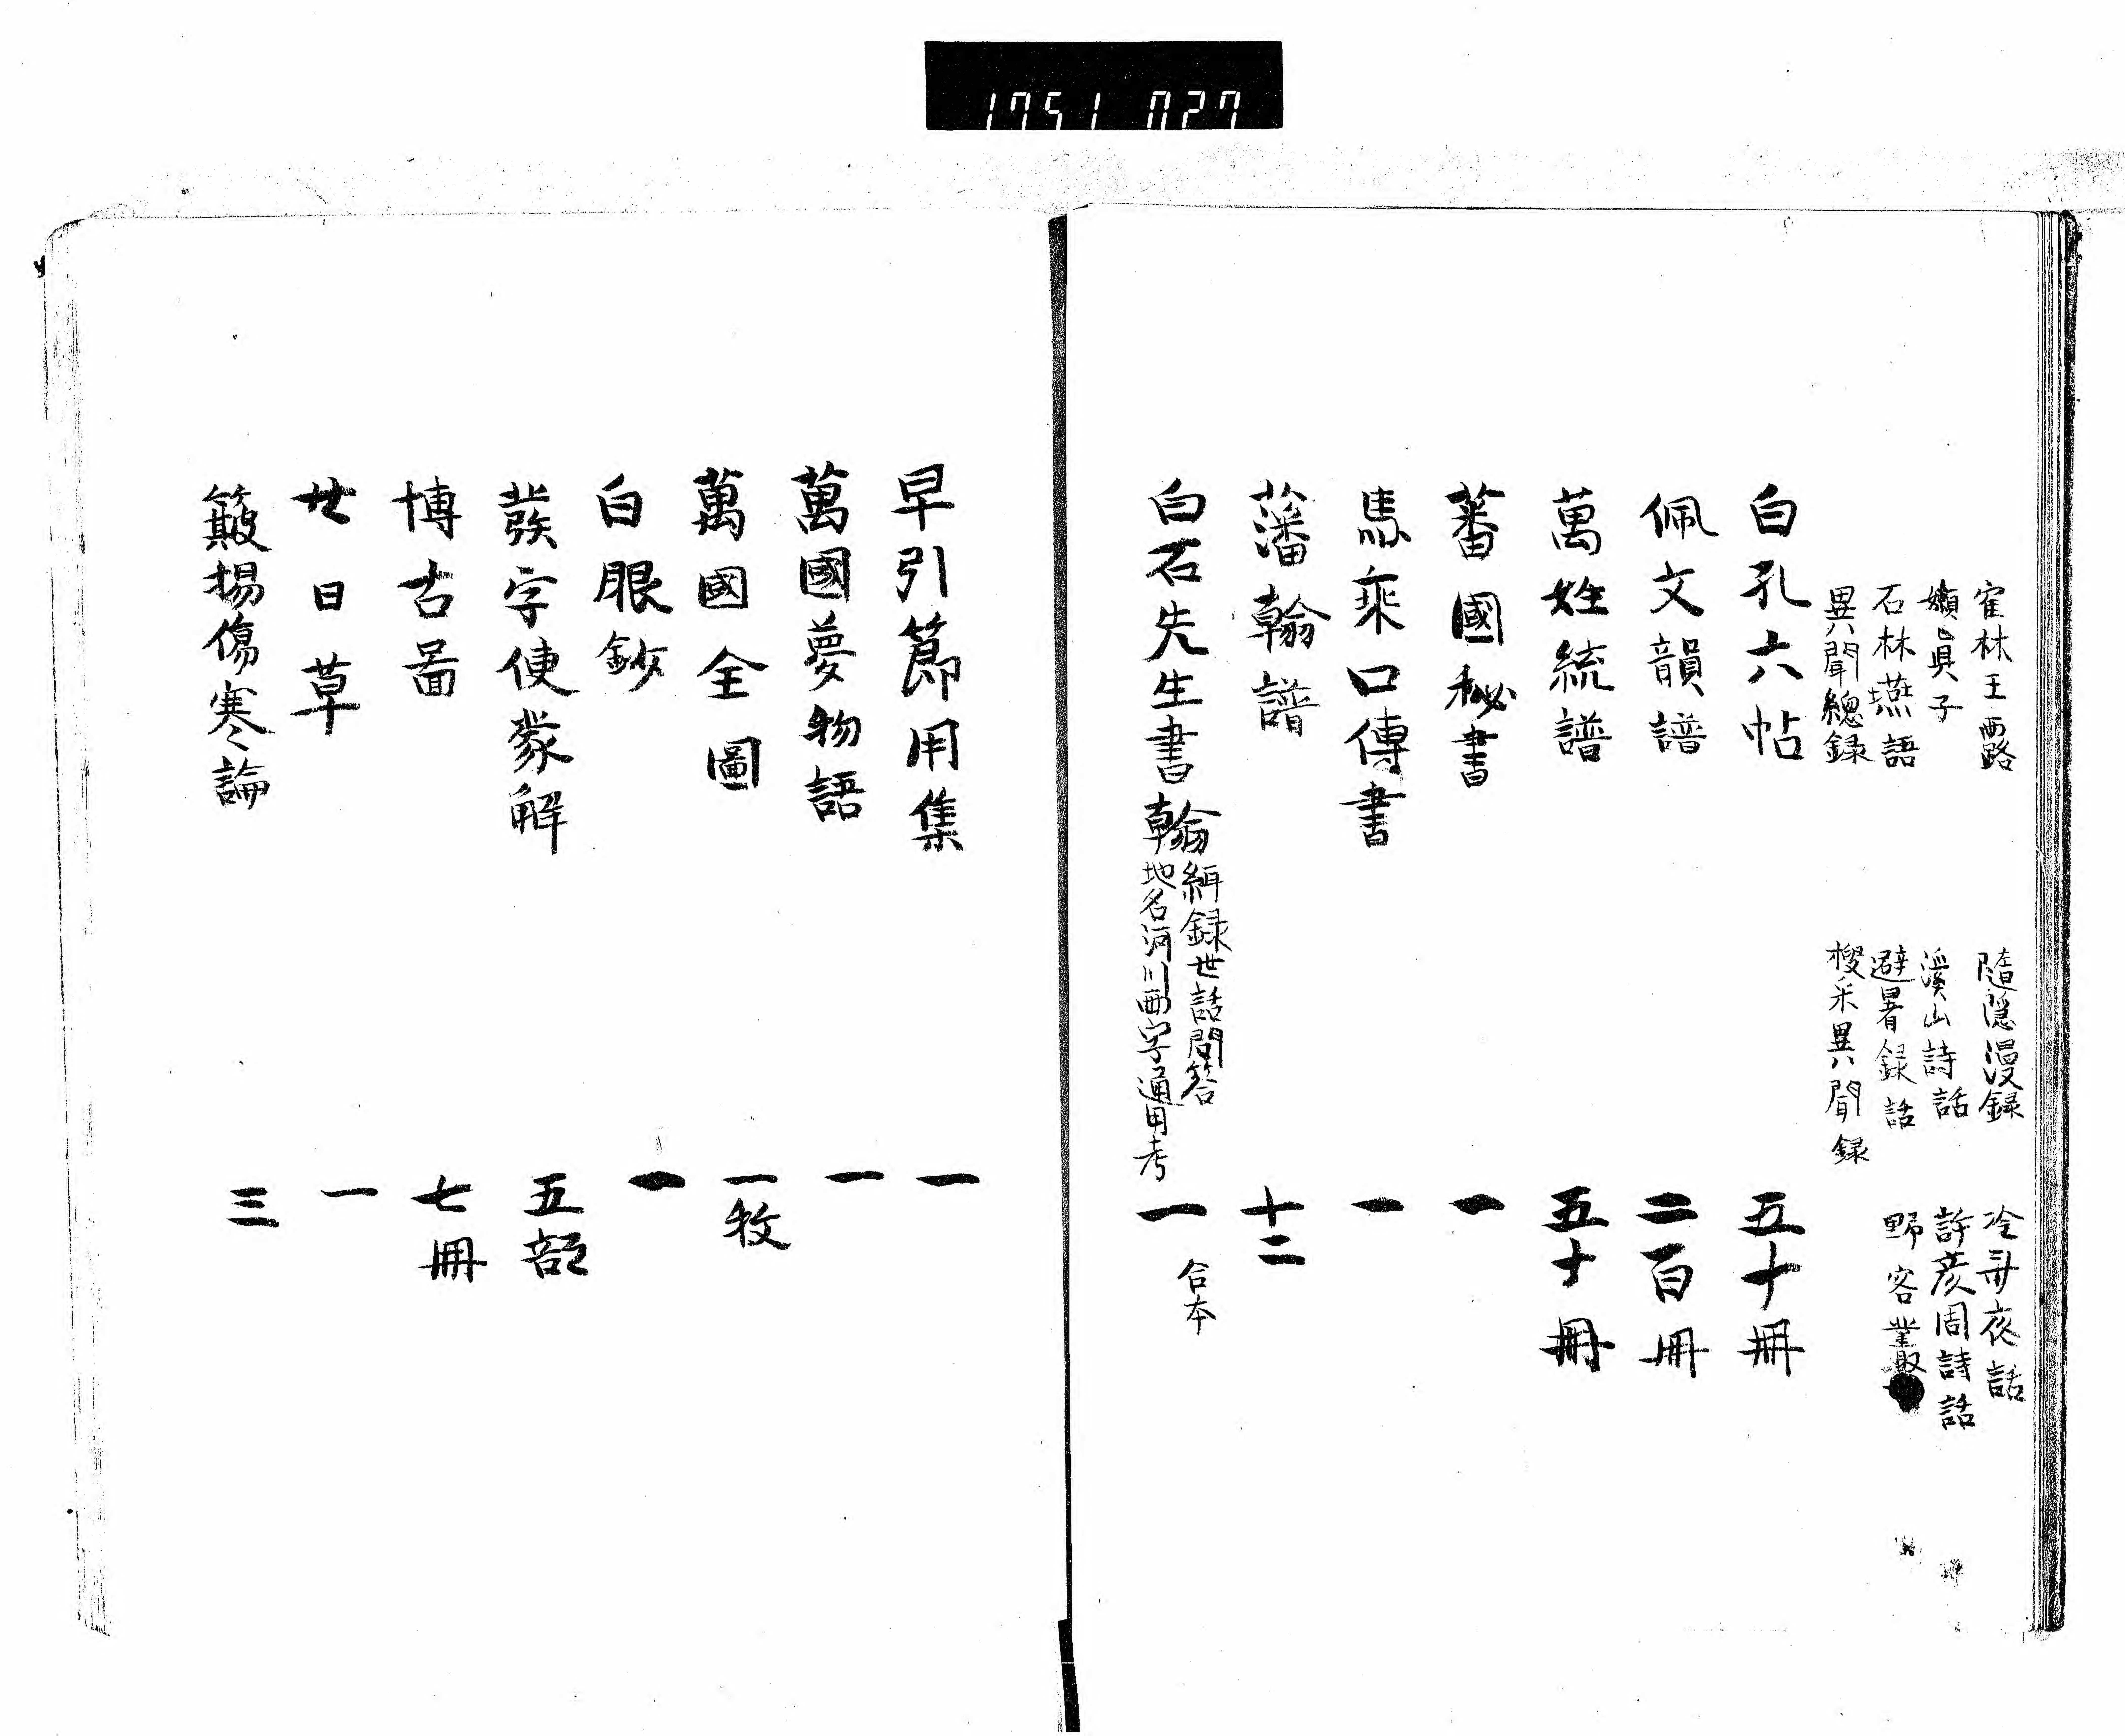 1751 027
寉林玉露 隨隱漫録 冷斎夜話
嬾眞子 溪山詩話 許彦周詩話
石林燕語 避暑録話 野客叢
異聞總録 稷采異聞録
白孔六帖 五十冊
佩文韻譜 二百冊
萬姓統譜 五十冊
蕃國秘書 一
馬乘口傳書 一
藩翰譜 十二
白石先生書翰 緝録世話問答 地名河川両字通用考 一 合本
早引節用集 一
萬國夢物語 一
萬國全圖 一枚
白眼鈔 一
字使蒙解 五部
博古圖 七冊
廿日草 一
簸揚傷寒論 三